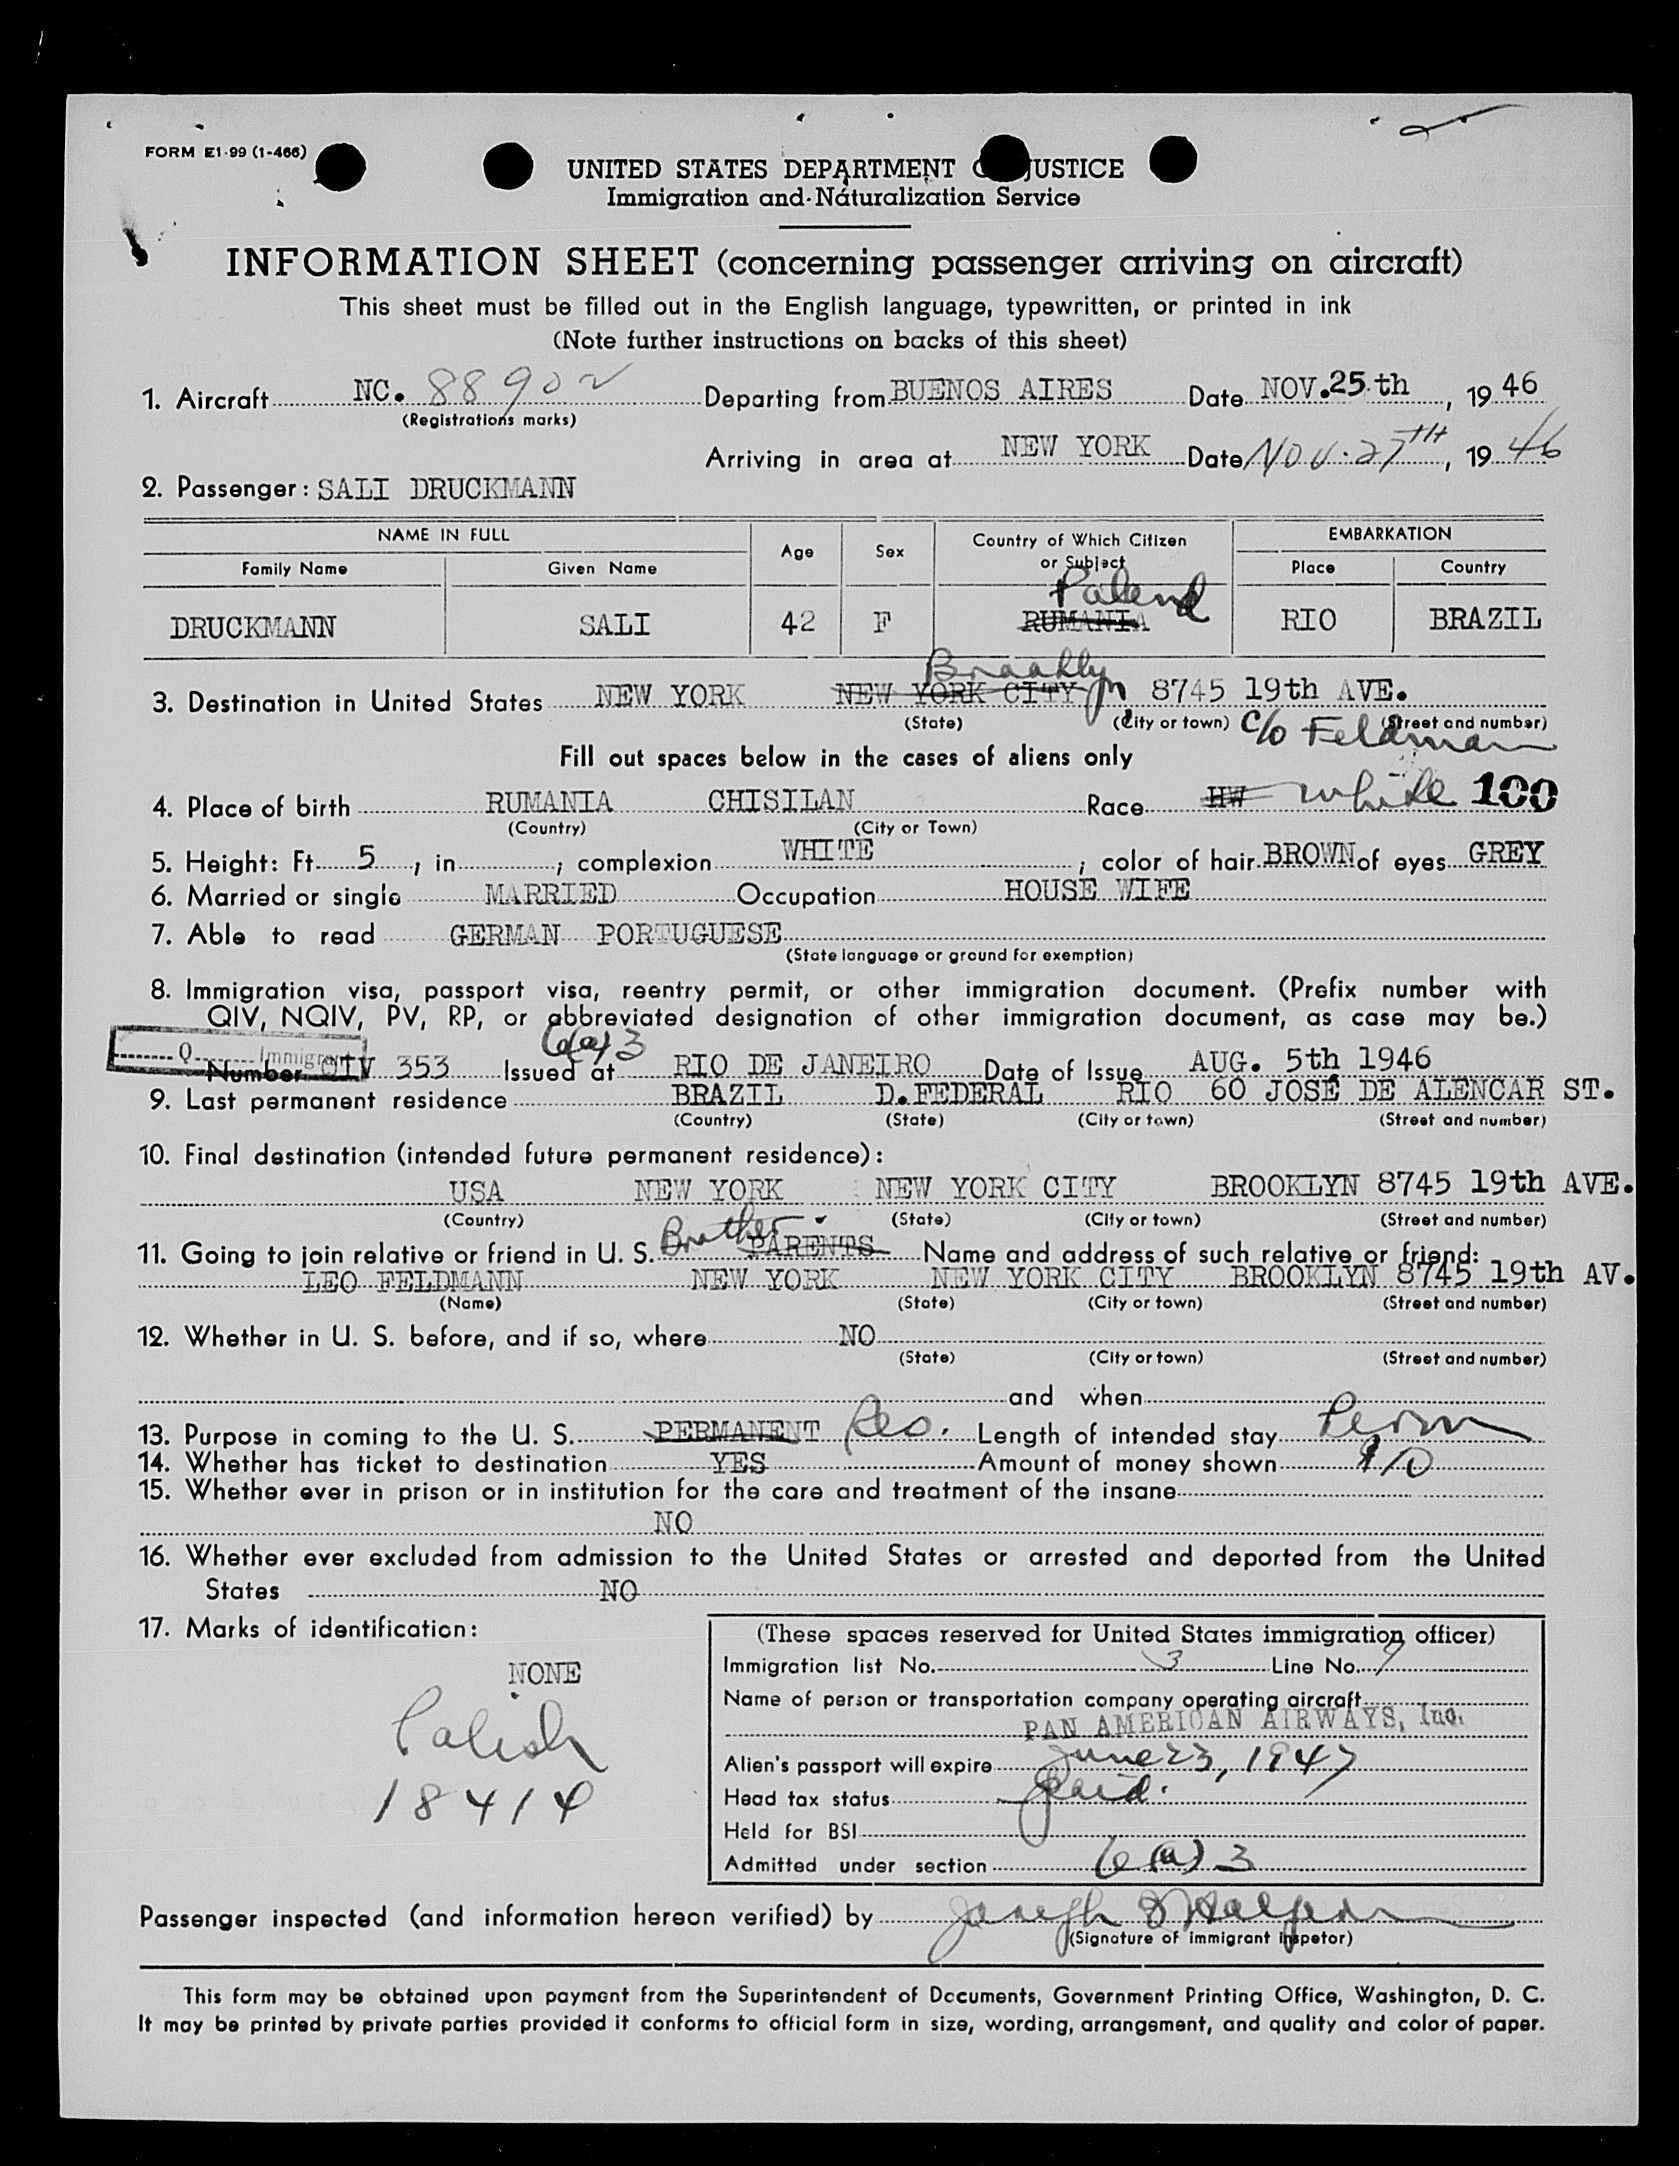 FORM E1-99 (1-466)
UNITED STATES DEPARTMENT JUSTICE
Immigration and Naturalization Service
INFORMATION SHEET (concerning passenger arriving on aircraft)
This sheet must be filled out in the English language, typewritten, or printed in ink
(Note further instructions on backs of this sheet)
1. Aircraft NC. 88902 Departing from BUENOS AIRES Date NOV.25 th, 19 46
(Registrations marks)
Arriving in area at NEW YORK Date NOV. 27TH, 19 46
2. Passenger: SALI DRUCKMANN
NAME IN FULL Age Sex Country of Which Citizen or Subject EMBARKATION
Family Name Given Name Place Country
Poland
DRUCKMANN SALI 42 F RUMANIA RIO BRAZIL
Brooklyn
3. Destination in United States NEW YORK NEW YORK CITY 8745 19th AVE.
(State) (City or town) (Street and number)
C/o Feldman
Fill out spaces below in the cases of aliens only
4. Place of birth RUMANIA CHISILAN Race HW white 100
(Country) (City or Town)
5. Height: Ft. 5, in. ; complexion WHITE ; color of hair BROWN of eyes GREY
6. Married or single MARRIED Occupation HOUSE WIFE
7. Able to read GERMAN PORTUGUESE
(State language or ground for exemption)
8. Immigration visa, passport visa, reentry permit, or other immigration document. (Prefix number with
QIV, NQIV, PV, RP, or abbreviated designation of other immigration document, as case may be.)
6(a)3
Q Immigrant
Number QIV 353 Issued at RIO DE JANEIRO Date of Issue AUG. 5th 1946
9. Last permanent residence BRAZIL D.FEDERAL RIO 60 JOSÉ DE ALENCAR ST.
(Country) (State) (City or town) (Street and number)
10. Final destination (intended future permanent residence):
USA NEW YORK NEW YORK CITY BROOKLYN 8745 19th AVE.
(Country) (State) (City or town) (Street and number)
11. Going to join relative or friend in U. S. Brother PARENTS Name and address of such relative or friend:
LEO FELDMANN NEW YORK NEW YORK CITY BROOKLYN 8745 19th AV.
(Name) (State) (City or town) (Street and number)
12. Whether in U. S. before, and if so, where NO
(State) (City or town) (Street and number)
and when
13. Purpose in coming to the U. S. PERMANENT Res. Length of intended stay Perm
14. Whether has ticket to destination YES Amount of money shown 10
15. Whether ever in prison or in institution for the care and treatment of the insane
NO
16. Whether ever excluded from admission to the United States or arrested and deported from the United
States NO
17. Marks of identification:
NONE
Polish
18414
(These spaces reserved for United States immigration officer)
Immigration list No. 3 Line No. 9
Name of person or transportation company operating aircraft
PAN AMERICAN AIRWAYS, Inc.
Alien's passport will expire June 23, 1947
Head tax status paid.
Held for BSI
Admitted under section 6(a)3
Passenger inspected (and information hereon verified) by Joseph Halpern
(Signature of immigrant inspetor)
This form may be obtained upon payment from the Superintendent of Documents, Government Printing Office, Washington, D. C.
It may be printed by private parties provided it conforms to official form in size, wording, arrangement, and quality and color of paper.